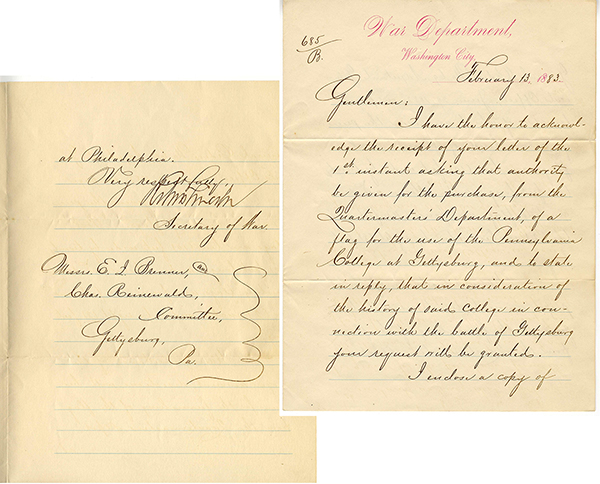 War Department,
Washington City,
685
B.
February 13 1883
Gentlemen:
I have the honor to acknowl-
edge the receipt of your letter of the
1st instant asking that authority
be given for the purchase, from the
Quartermasters' Department, of a
flag for the use of the Pennsylvania
College at Gettysburg, and to state
in reply, that in consideration of
the history of said college in con-
nection with the battle of Gettysburg
your request will be granted.
I enclose a copy of
at Philadelphia.
Very respectfully,
Secretary of War.
Messrs. E. J.
Chas. Reinewald,
Committee,
Gettysburg,
Pa.